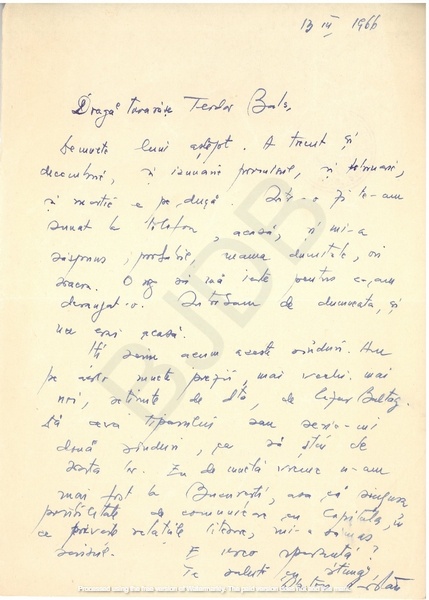 13 III 1966
Dragă tovarășe Teodor Balș,
De multe luni aștept. A trecut și
decembrie, și ianuarie, și februarie,
și martie e pe ducă. Într-o zi te-am
sunat la telefon, acasă, și mi-a
răspuns, probabil, mama dumitale, ori
soacra. O rog să mă ierte pentru că am
deranjat-o. Întrebam de dumneata, și
nu erai acasă.
Îți scriu acum aceste rânduri. Am
pe acolo multe poezii, mai vechi, mai
noi, reținute de dta, de
Dă ceva tiparului sau scrie-mi
două rânduri, ca să știu de
soarta lor. Eu de multă vreme n-am
mai fost la București, așa că singura
posibilitate de comunicare cu Capitala, în
ce privește relațiile literare, mi-a rămas
scrisul. E vreo speranță?
Te salută cu stimă,
BJDB